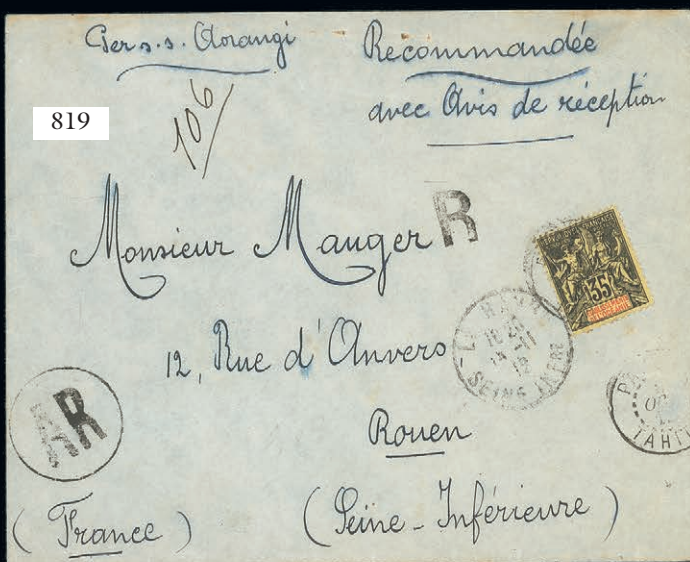 Per s.s. Aorangi
Recommandée
avec Avis de réception
819
106
Monsieur Mauger
R
35
LE HAV
SEINE INFRE
12, Rue d'Anvers
TAHITI
AR
Rouen
(France)
(Seine-Inférieure)